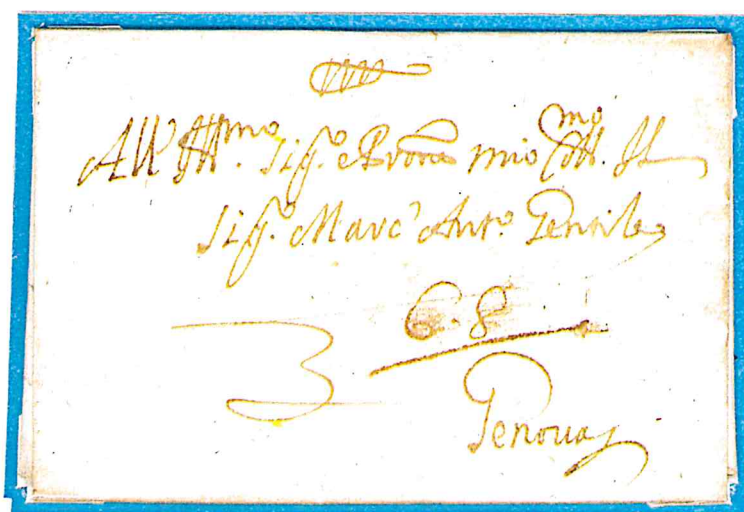 All' Ill.mo Sig.r Pron mio Col.mo Il
Sig.r Marc' Ant.o Gentile
6.8
3
Genova